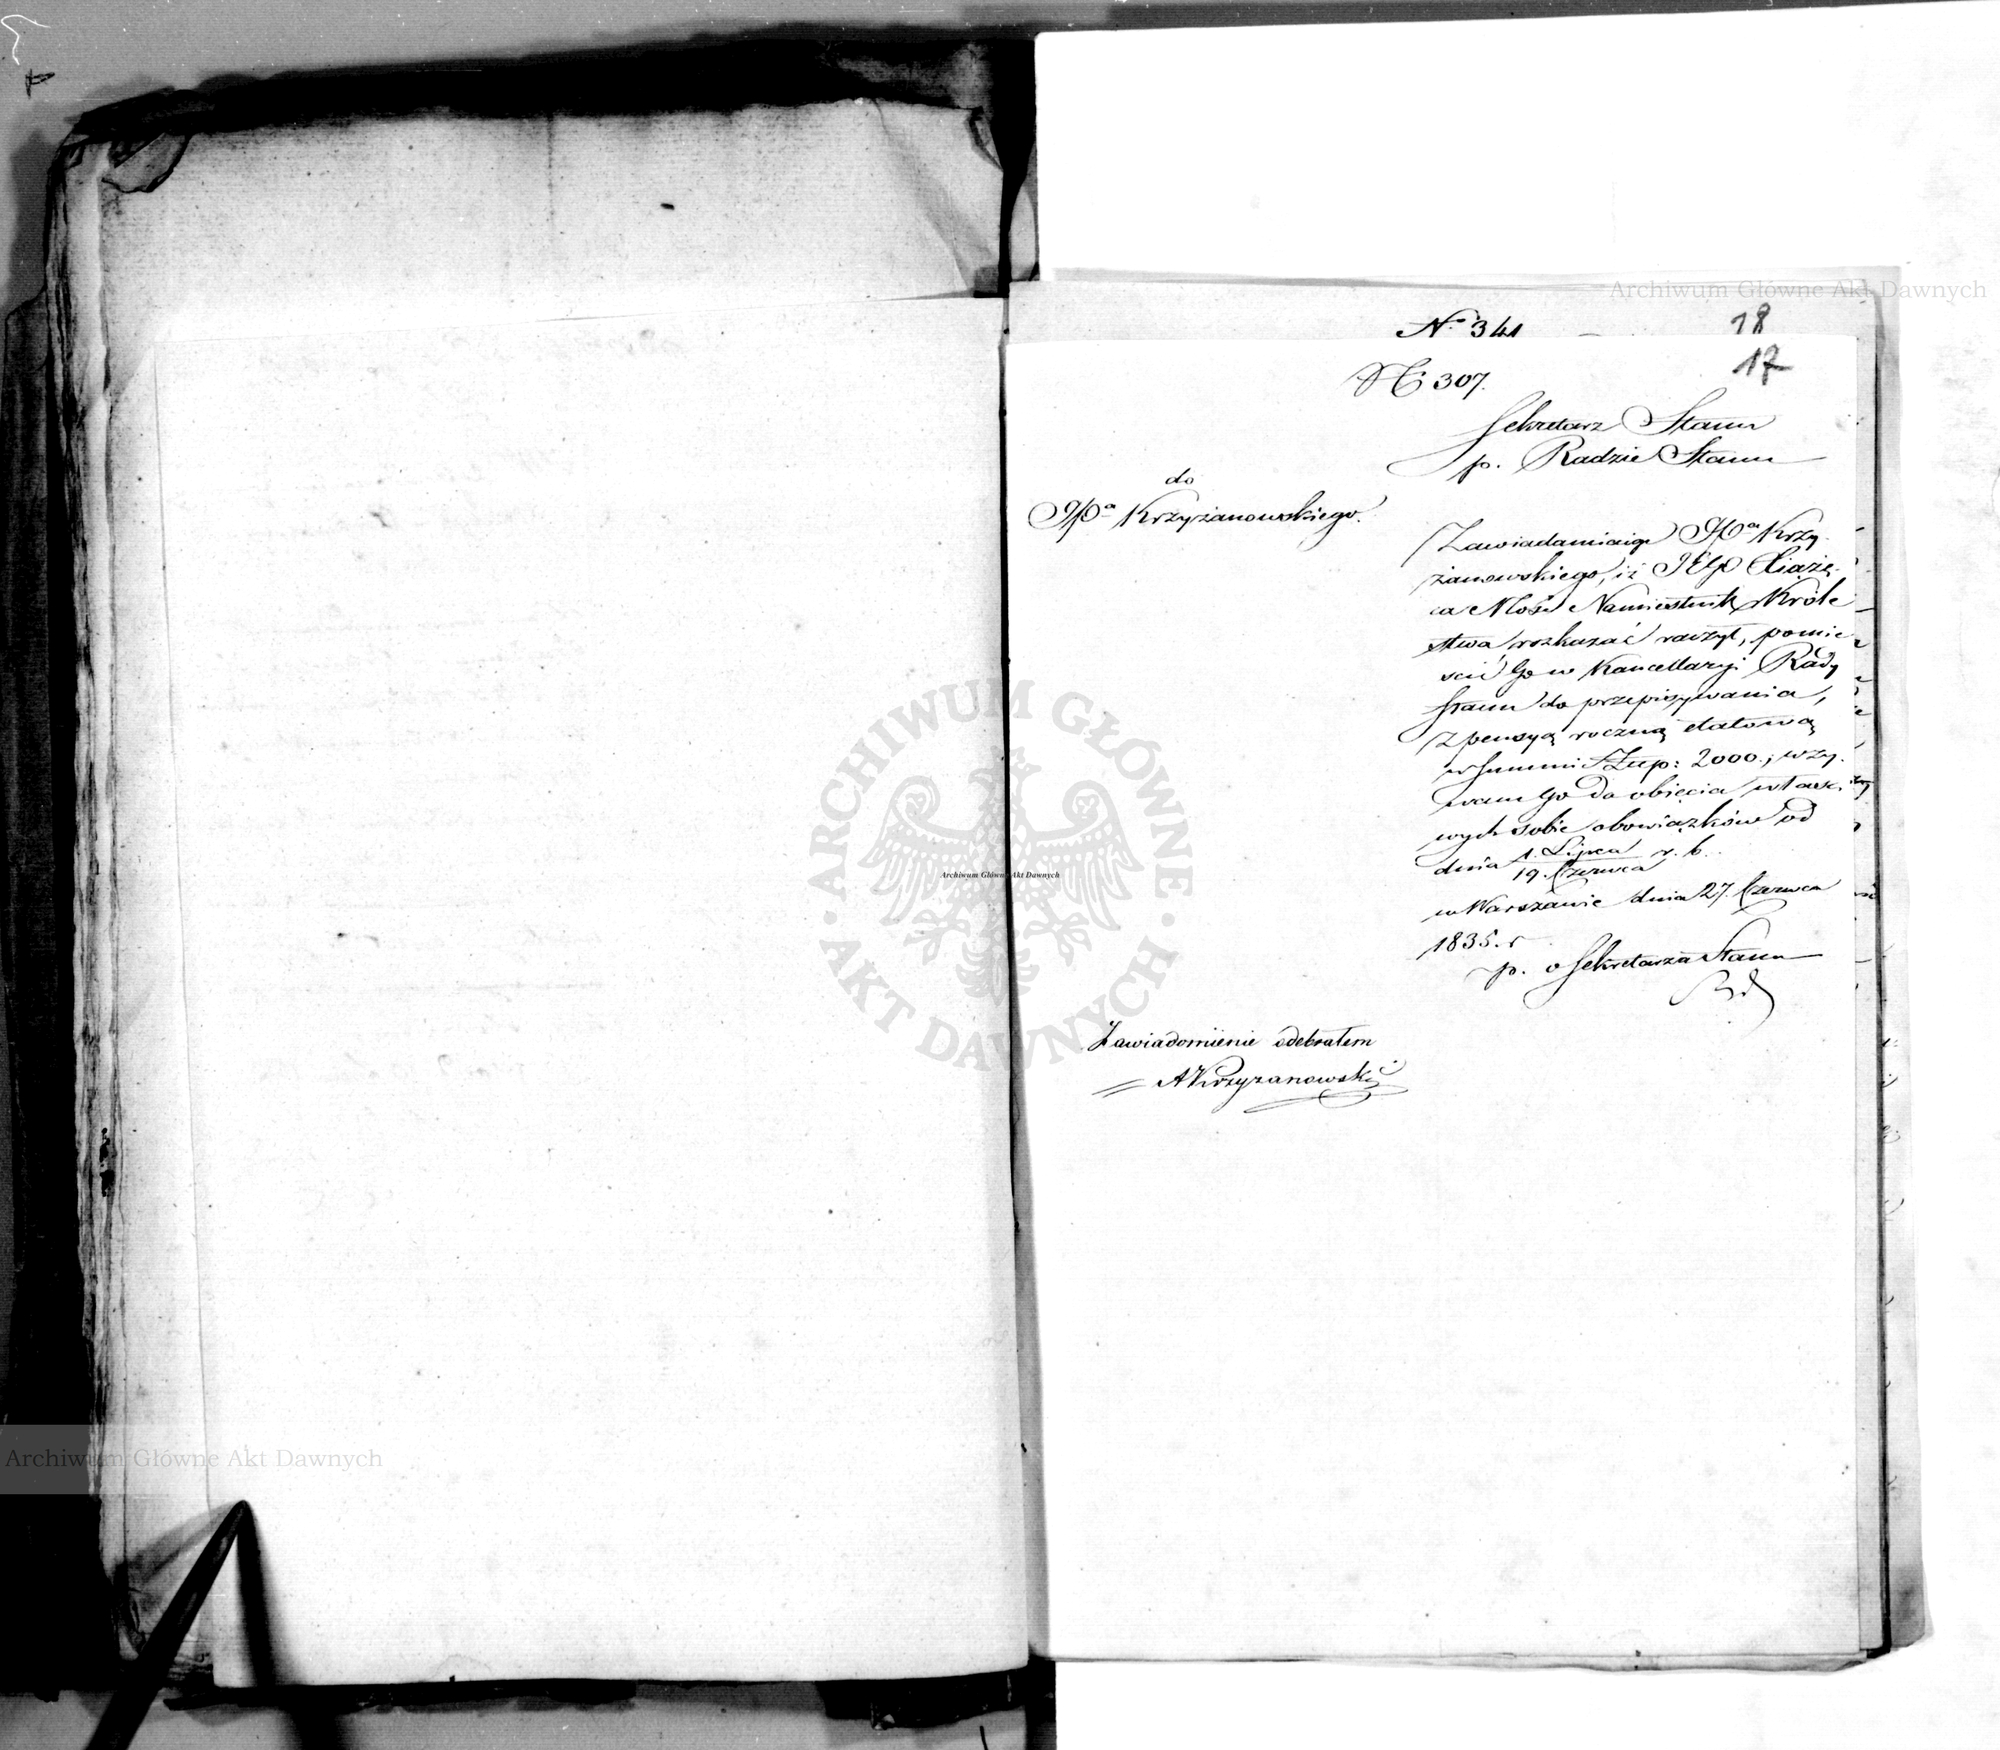 Archiwum Główne Akt Dawnych
No 341
18
17
No 307.
Sekretarz Stanu
p. Radzie Stanu
do
JPa Krzyżanowskiego.
Zawiadamiaiąc JPa Krzy-
żanowskiego, iż JEgo Xiążę-
ca Mość Namiestnik Króle
stwa rozkazać raczył, pomie
scić Go w Kancellaryi Rady
Stanu do przepisywania,
z pensyą roczną etatową
w summie Złłp: 2000.; wzy-
wam Go do obięcia właści
wych sobie obowiązków od
dnia 1. Lipca / 19. Czerwca r. b.
w Warszawie dnia 27. Czerwca
1835. r
p. o Sekretarza Stanu
Zawiadomienie odebrałem
AKrzyżanowski
ARCHIWUM GŁÓWNE
AKT DAWNYCH
Archiwum Główne Akt Dawnych
Archiwum Główne Akt Dawnych